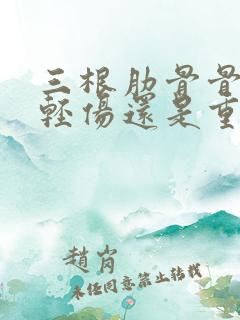 三根肋骨骨
輕傷還是重
趙肖
未任同意禁止转载